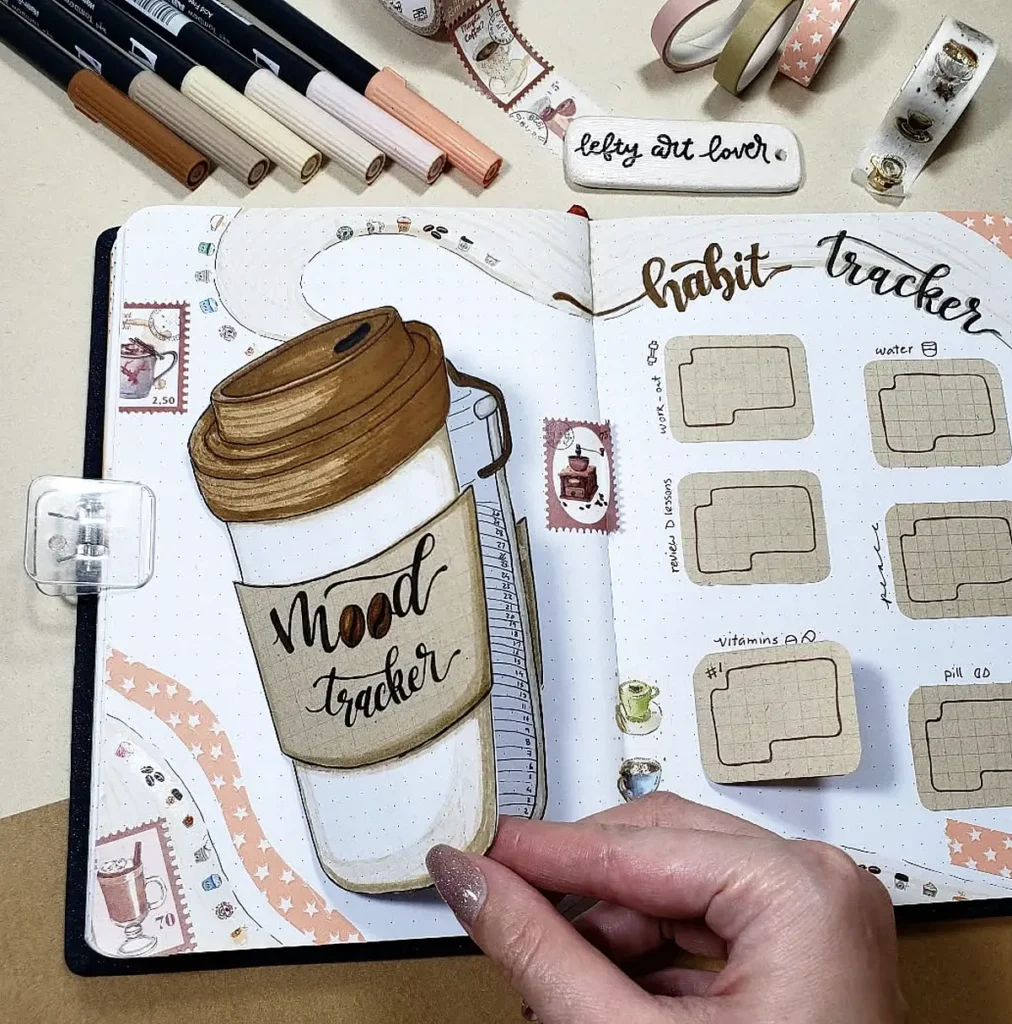 Tombow
lefty art lover
habit tracker
2,50
75
mood
tracker
work-out
water
review D lessons
peace
vitamins
#1
pill
70